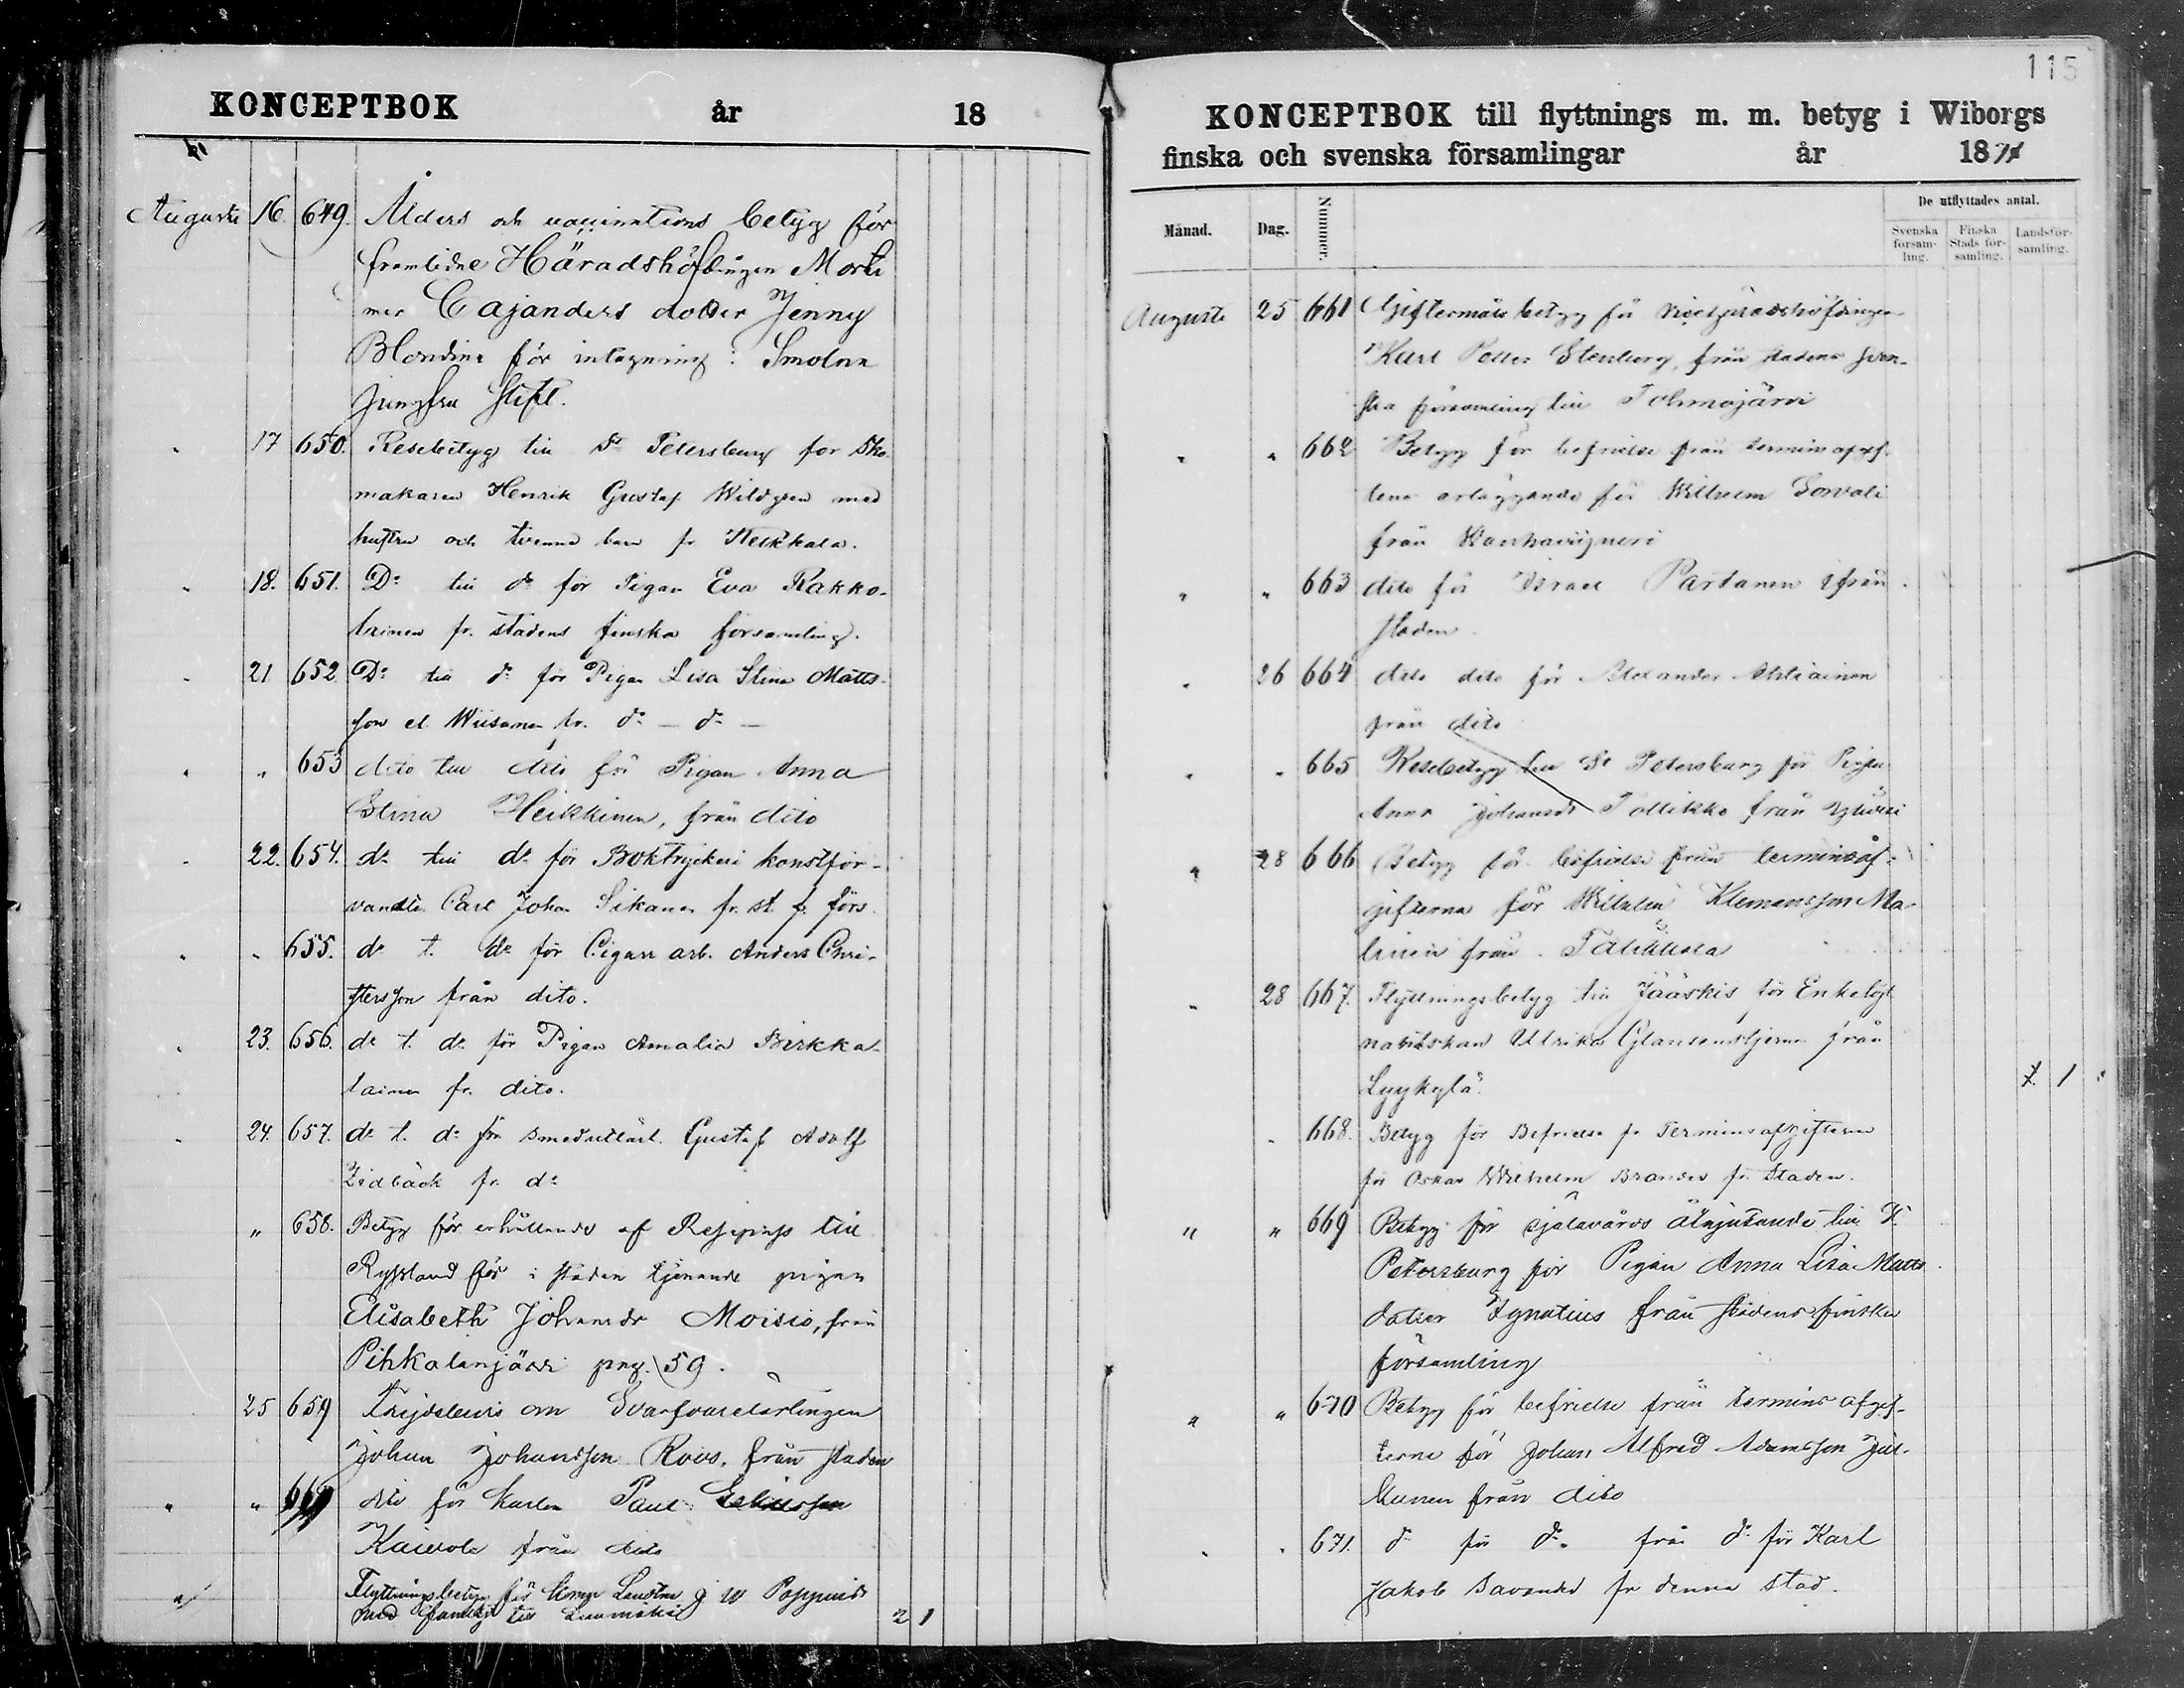 KONCEPTBOK år 18
Augusti 16. 649. Ålders och vaccinations betyg för
framlidne Häradshöfdingen Morti
mer Cajanders dotter Jenny
Blondina för intagning i Smolna
Jungfru Stift.
" 17 650. Resebetyg till St Petersburg för Sko
makaren Henrik Gustaf Wildgren med
hustru och tvenne barn fr Heikkala.
" 18. 651. Do till do för Pigan Eva Kakko-
lainen fr. stadens finska församling.
" 21 652. Do till do för Pigan Lisa Stina Matts-
son el. Wiisanen fr. do - do -
" " 653 dito till dito för Pigan Anna
Stina Heikkinen, från dito
" 22. 654. do till do för Boktryckeri konstför-
vandten Carl Johan Sikanen fr. st. f. förs.
" " 655. do t. do för Cigarr arb. Anders Chri-
stersson från dito.
" 23. 656. do t. do för Pigan Amalia Pirkka-
lainen fr. dito.
" 24. 657. do t. do för smedutlärl. Gustaf Adolf
Lidbäck fr. do
" 658. Betyg för erhållande af Respass till
Ryssland för i staden tjenande pigan
Elisabeth Johansdr Moisio, från
Pihkalanjärvi pag. 59.
25 659 Frejdebevis om Svarfvarelärlingen
Johan Johansson Roos, från staden
" " 660 dito för Karlen Paul
Kaivola från dito
" Flyttningsbetyg för Landtm J W Poppius
med familj till 2 1
115
KONCEPTBOK till flyttnings m. m. betyg i Wiborgs
finska och svenska församlingar år 1871
Månad. Dag. Nummer. De utflyttades antal.
Svenska församling. Finska Stads församling. Landsförsamling.
Augusti 25 661 Giftermåls betyg för Vicehäradshöfdingen
Karl Petter Stenberg, från stadens sven-
ska församling till Tohmajärvi
" " 662 Betyg för befrielse från terminsafgif-
terna erläggande för Wilhelm Sorvali
från
" " 663 dito för Israel Partanen ifrån
staden.
" 26 664 dito dito för Alexander Ahtiainen
från dito
" " 665 Resebetyg till St Petersburg för Pigan
Anna Johansdr Tollikko från
" 28 666 Betyg för befrielse från terminsaf-
gifterna för Wilhelm Klemensson Ma-
linen från Talikkala
" 28 667. Flyttningsbetyg till Jääskis för Enkelöjt
nantskan Ulrika Glansenstjerna från
Lyykylä. 1
" 668. Betyg för Befrielse fr Terminsafgifterna
för Oskar Wilhelm Brander fr. Staden.
" " 669 Betyg för själavårds åtnjutande till St.
Petersburg för Pigan Anna Lisa Matts
dotter Ignatius från stadens finska
församling
" " 670 Betyg för befrielse från termins afgif-
terna för Johan Alfred Adamsson Jul-
kunen från dito
" " 671. do för do från do för Karl
Jakob Savander fr denna stad.